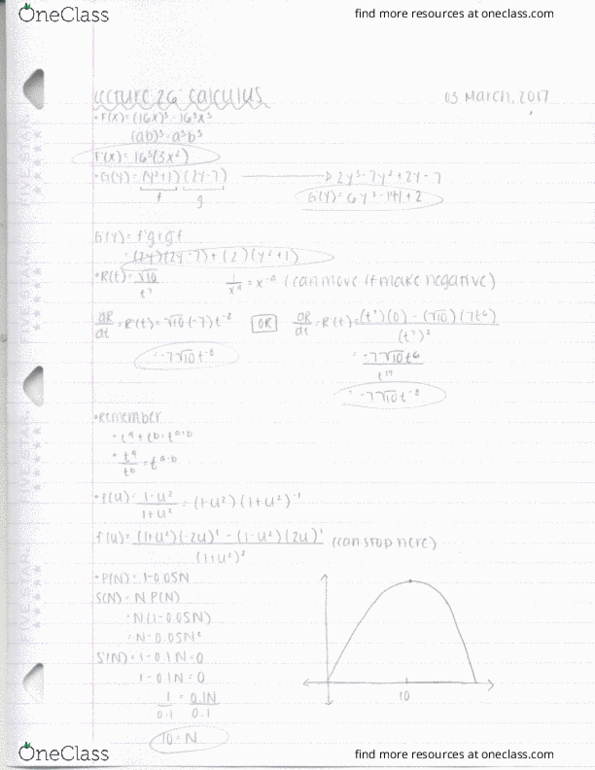 OneClass
find more resources at oneclass.com
Lecture 26 Calculus
03 March, 2017
• F(x) = (16x)³ = 16³x³
(ab)³ = a³b³
F'(x) = 16³(3x²)
• G(y) = (y²+1)(2y-7) → 2y³-7y²+2y-7
f g
G'(y) = 6y²-14y+2
G'(y) = f'g+g'f
= (2y)(2y-7)+(2)(y²+1)
• R(t) = √10/t⁷ 1/xᵃ = x⁻ᵃ (can move if make negative)
dR/dt = R'(t) = √10(-7)t⁻⁸ OR dR/dt = R'(t) = (t⁷)(0) - (√10)(7t⁶)/(t⁷)²
= -7√10t⁻⁸
= -7√10t⁶/t¹⁴
= -7√10t⁻⁸
• Remember
• tᵃ + tᵇ = tᵃ⁺ᵇ
• tᵃ/tᵇ = tᵃ⁻ᵇ
• f(u) = 1-u²/1+u² = (1-u²)(1+u²)⁻¹
f'(u) = (1+u²)(-2u)' - (1-u²)(2u)'/(1+u²)² (can stop here)
• P(N) = 1-0.05N
S(N) = N P(N)
= N(1-0.05N)
= N-0.05N²
S'(N) = 1-0.1N = 0
1-0.1N = 0
1/0.1 = 0.1N/0.1
10 = N
10
FIVE STAR.
FIVE STAR.
FIVE STAR.
OneClass
find more resources at oneclass.com